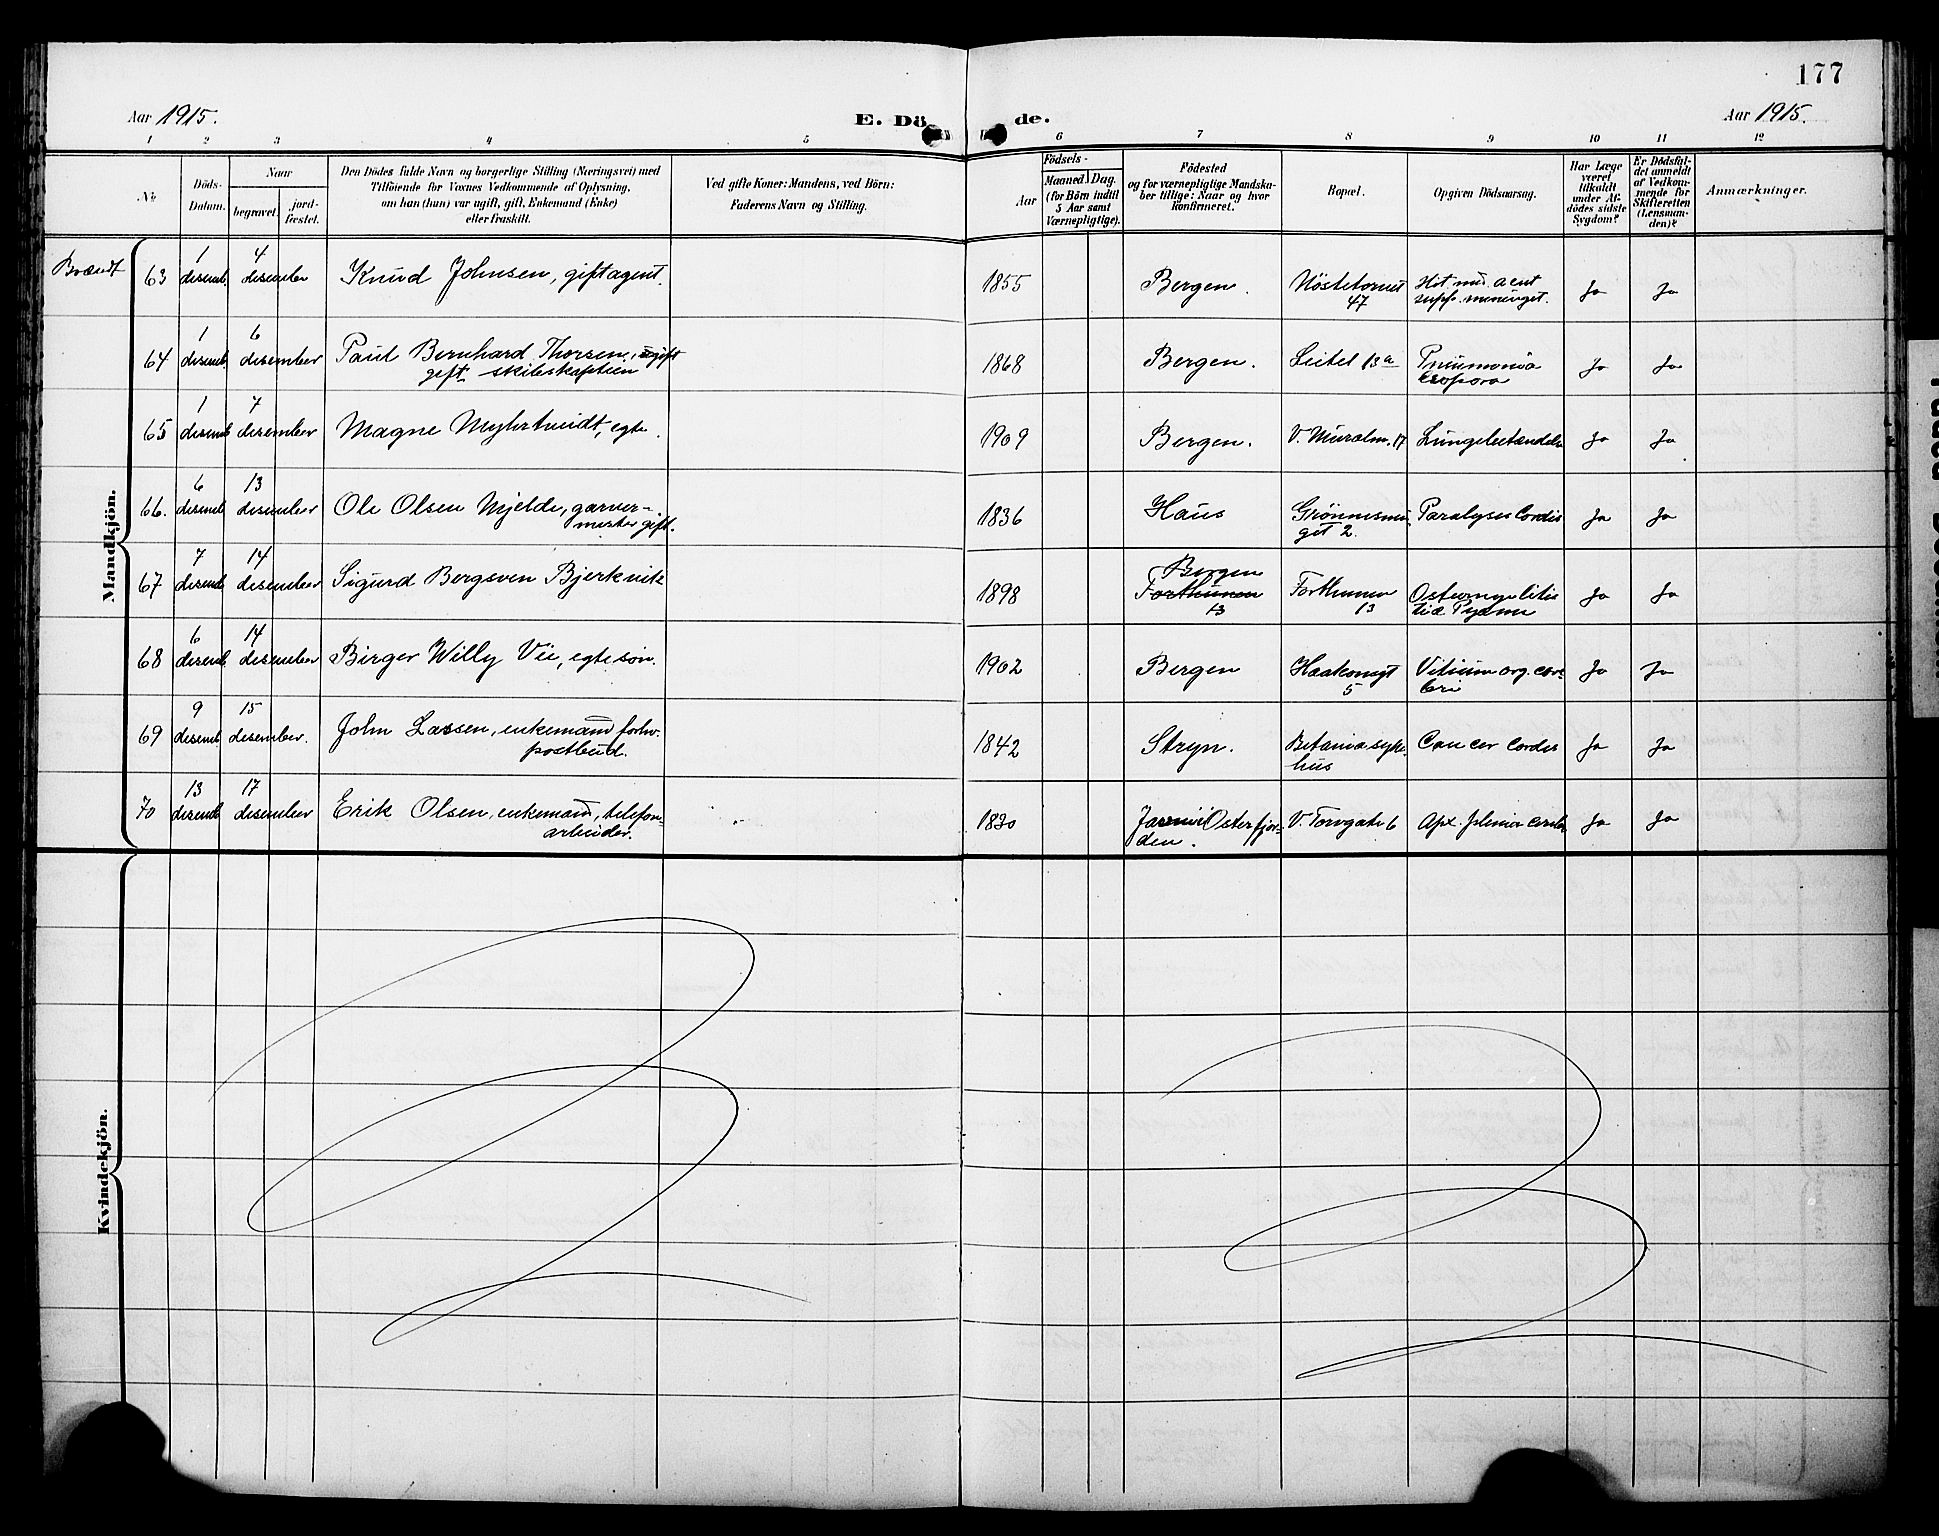 177
Aar 1915.
E. Dö
de.
Aar 1915.
1 2 3 4 5 6 7 8 9 10 11 12
Nr.
Döds-
Datum.
Naar
begravet.
jord-
fæstet.
Den Dödes fulde Navn og borgerlige Stilling (Næringsvei) med
Tilföiende for Voxnes Vedkommende af Oplysning,
om han (hun) var ugift, gift, Enkemand (Enke)
eller fraskilt.
Ved gifte Koner: Mandens, ved Börn:
Faderens Navn og Stilling.
Födsels-
Aar
Maaned Dag.
(for Börn indtil
5 Aar samt
Værnepligtige).
Födested
og for værnepligtige Mandska-
ber tillige: Naar og hvor
konfirmeret.
Bopæl.
Opgiven Dödsaarsag.
Har Læge
været
tilkaldt
under Af-
dödes sidste
Sygdom?
Er Dödsfal-
det anmeldt
af Vedkom-
mende for
Skifteretten
(Lensman-
den)?
Anmærkninger.
Mandkjön.
Brændt 63 1 desemb. 4 desember Knud Johnsen, gift agent. 1855 Bergen. Nöstetorvet
47
acut
supp. meninget. Ja Ja
64 1 desemb. 6 desember Paul Bernhard Thorsen, ugift
gift skibskaptein 1868 Bergen. Leitet 13a Pneumonia
Ja Ja
65 1 desemb 7 desember Magne egte. 1909 Bergen. V. Muralm. 17 Lungebetændelse Ja Ja
66. 6 desemb 13 desember Ole Olsen Mjelde, garver-
mester gift. 1836 Haus Grönnesmu
get 2. Paralyses Cordis Ja Ja
67 7 desemb 14 desember Sigurd Bergsven Bjerkvik 1898 Bergen
Forthunen
13 Forthunen
13 Osteomyelitis
Pyæmi Ja Ja
68 6 desemb. 14 desember Birger Willy Vie, egte sön. 1902 Bergen Haakonsgt
5 Vitium org. cor-
Ja Ja
69 9 desemb 15 desember. John Lassen, enkemand forhv.
postbud. 1842 Stryn. Betania syke-
hus Cancer Cordis Ja Ja
70 13 desemb 17 desember Erik Olsen, enkemand, telefon-
arbeider. 1830 Osterfjor-
den. V. Torvgate 6 Apx. Ja Ja
Kvindekjön.